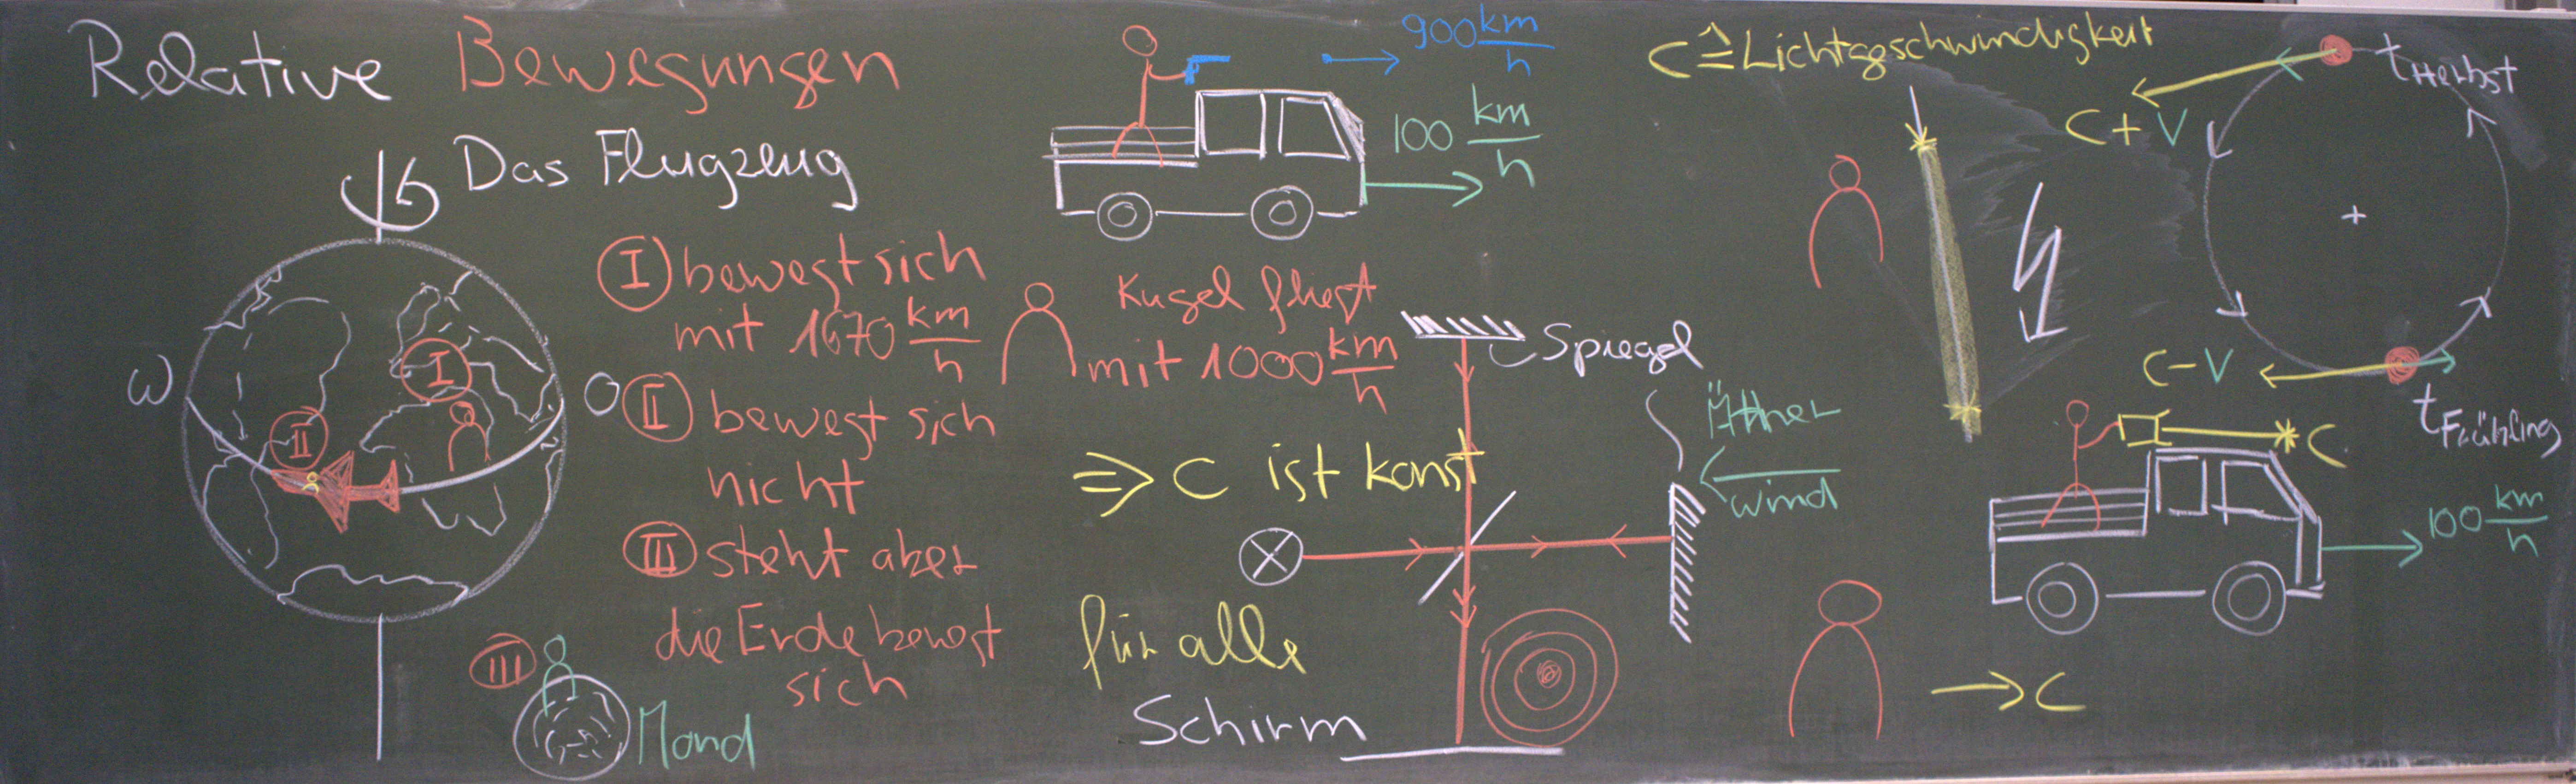 Relative Bewegungen
Das Flugzeug
W
O
I
II
I bewegt sich
mit 1670 km/h
II bewegt sich
nicht
III steht aber
die Erde bewegt
sich
III
Mond
900 km/h
100 km/h
Kugel fliegt
mit 1000 km/h
Spiegel
Äther
wind
⇒ C ist konst
für alle
Schirm
C ≙ Lichtgeschwindigkeit
C + V
tHerbst
C - V
tFrühling
C
100 km/h
→ C